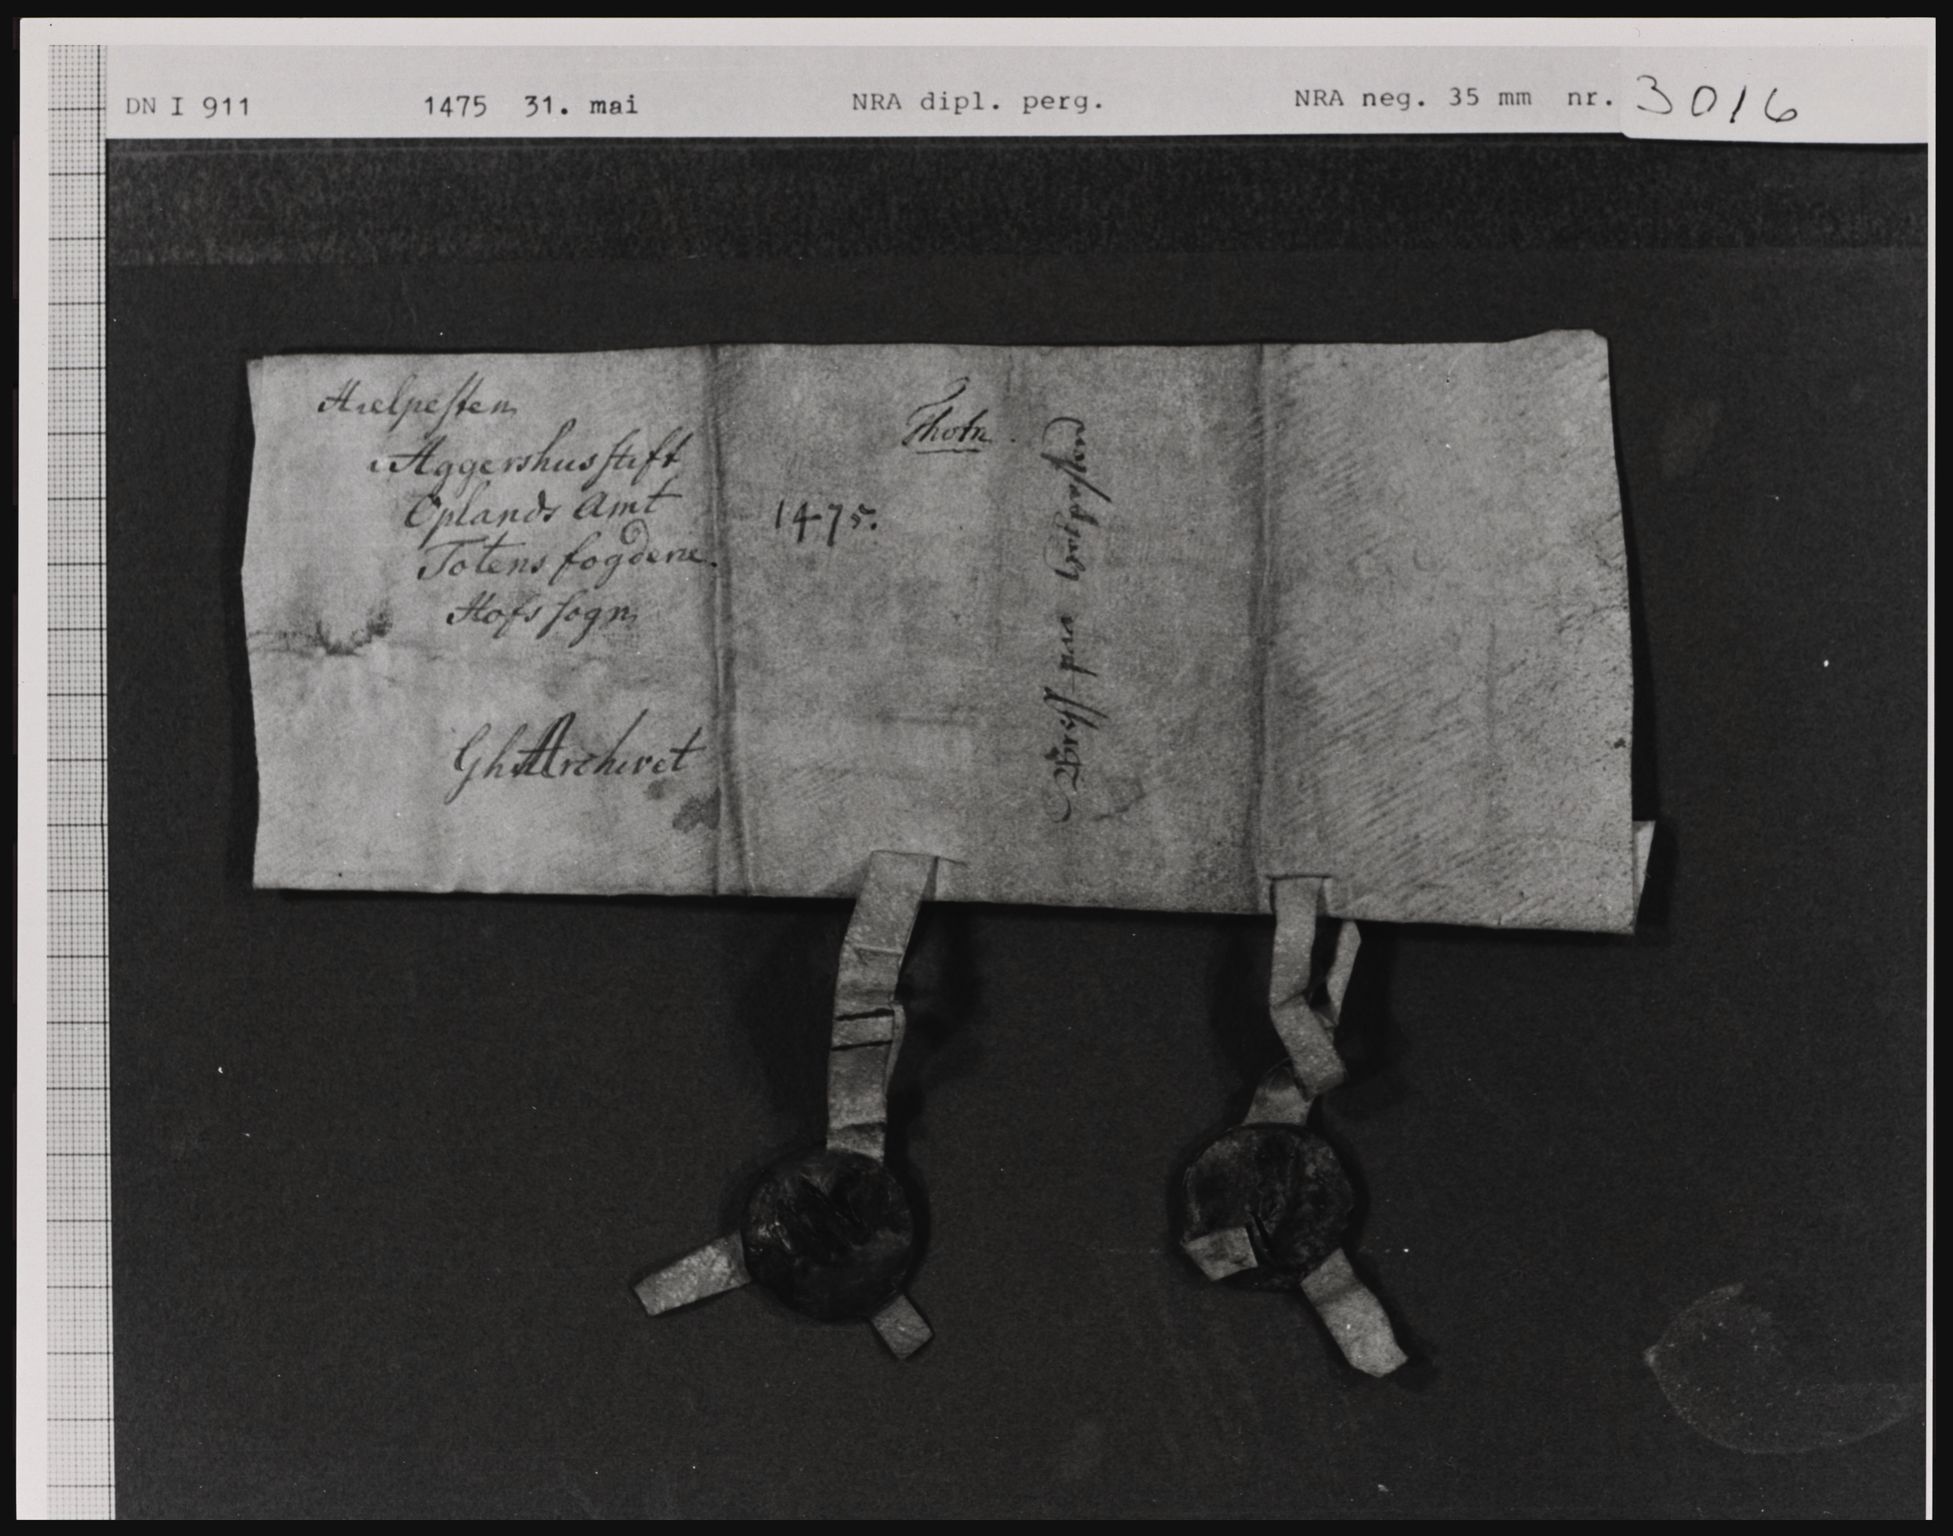 DN I 911 1475 31. mai NRA dipl. perg. NRA neg. 35 mm nr. 3016
Hielpesten
i Aggershus stift
Oplands Amt
Totens fogderie.
Hofs sogn
Gh Archivet
Thotn.
1475.
Breff paa